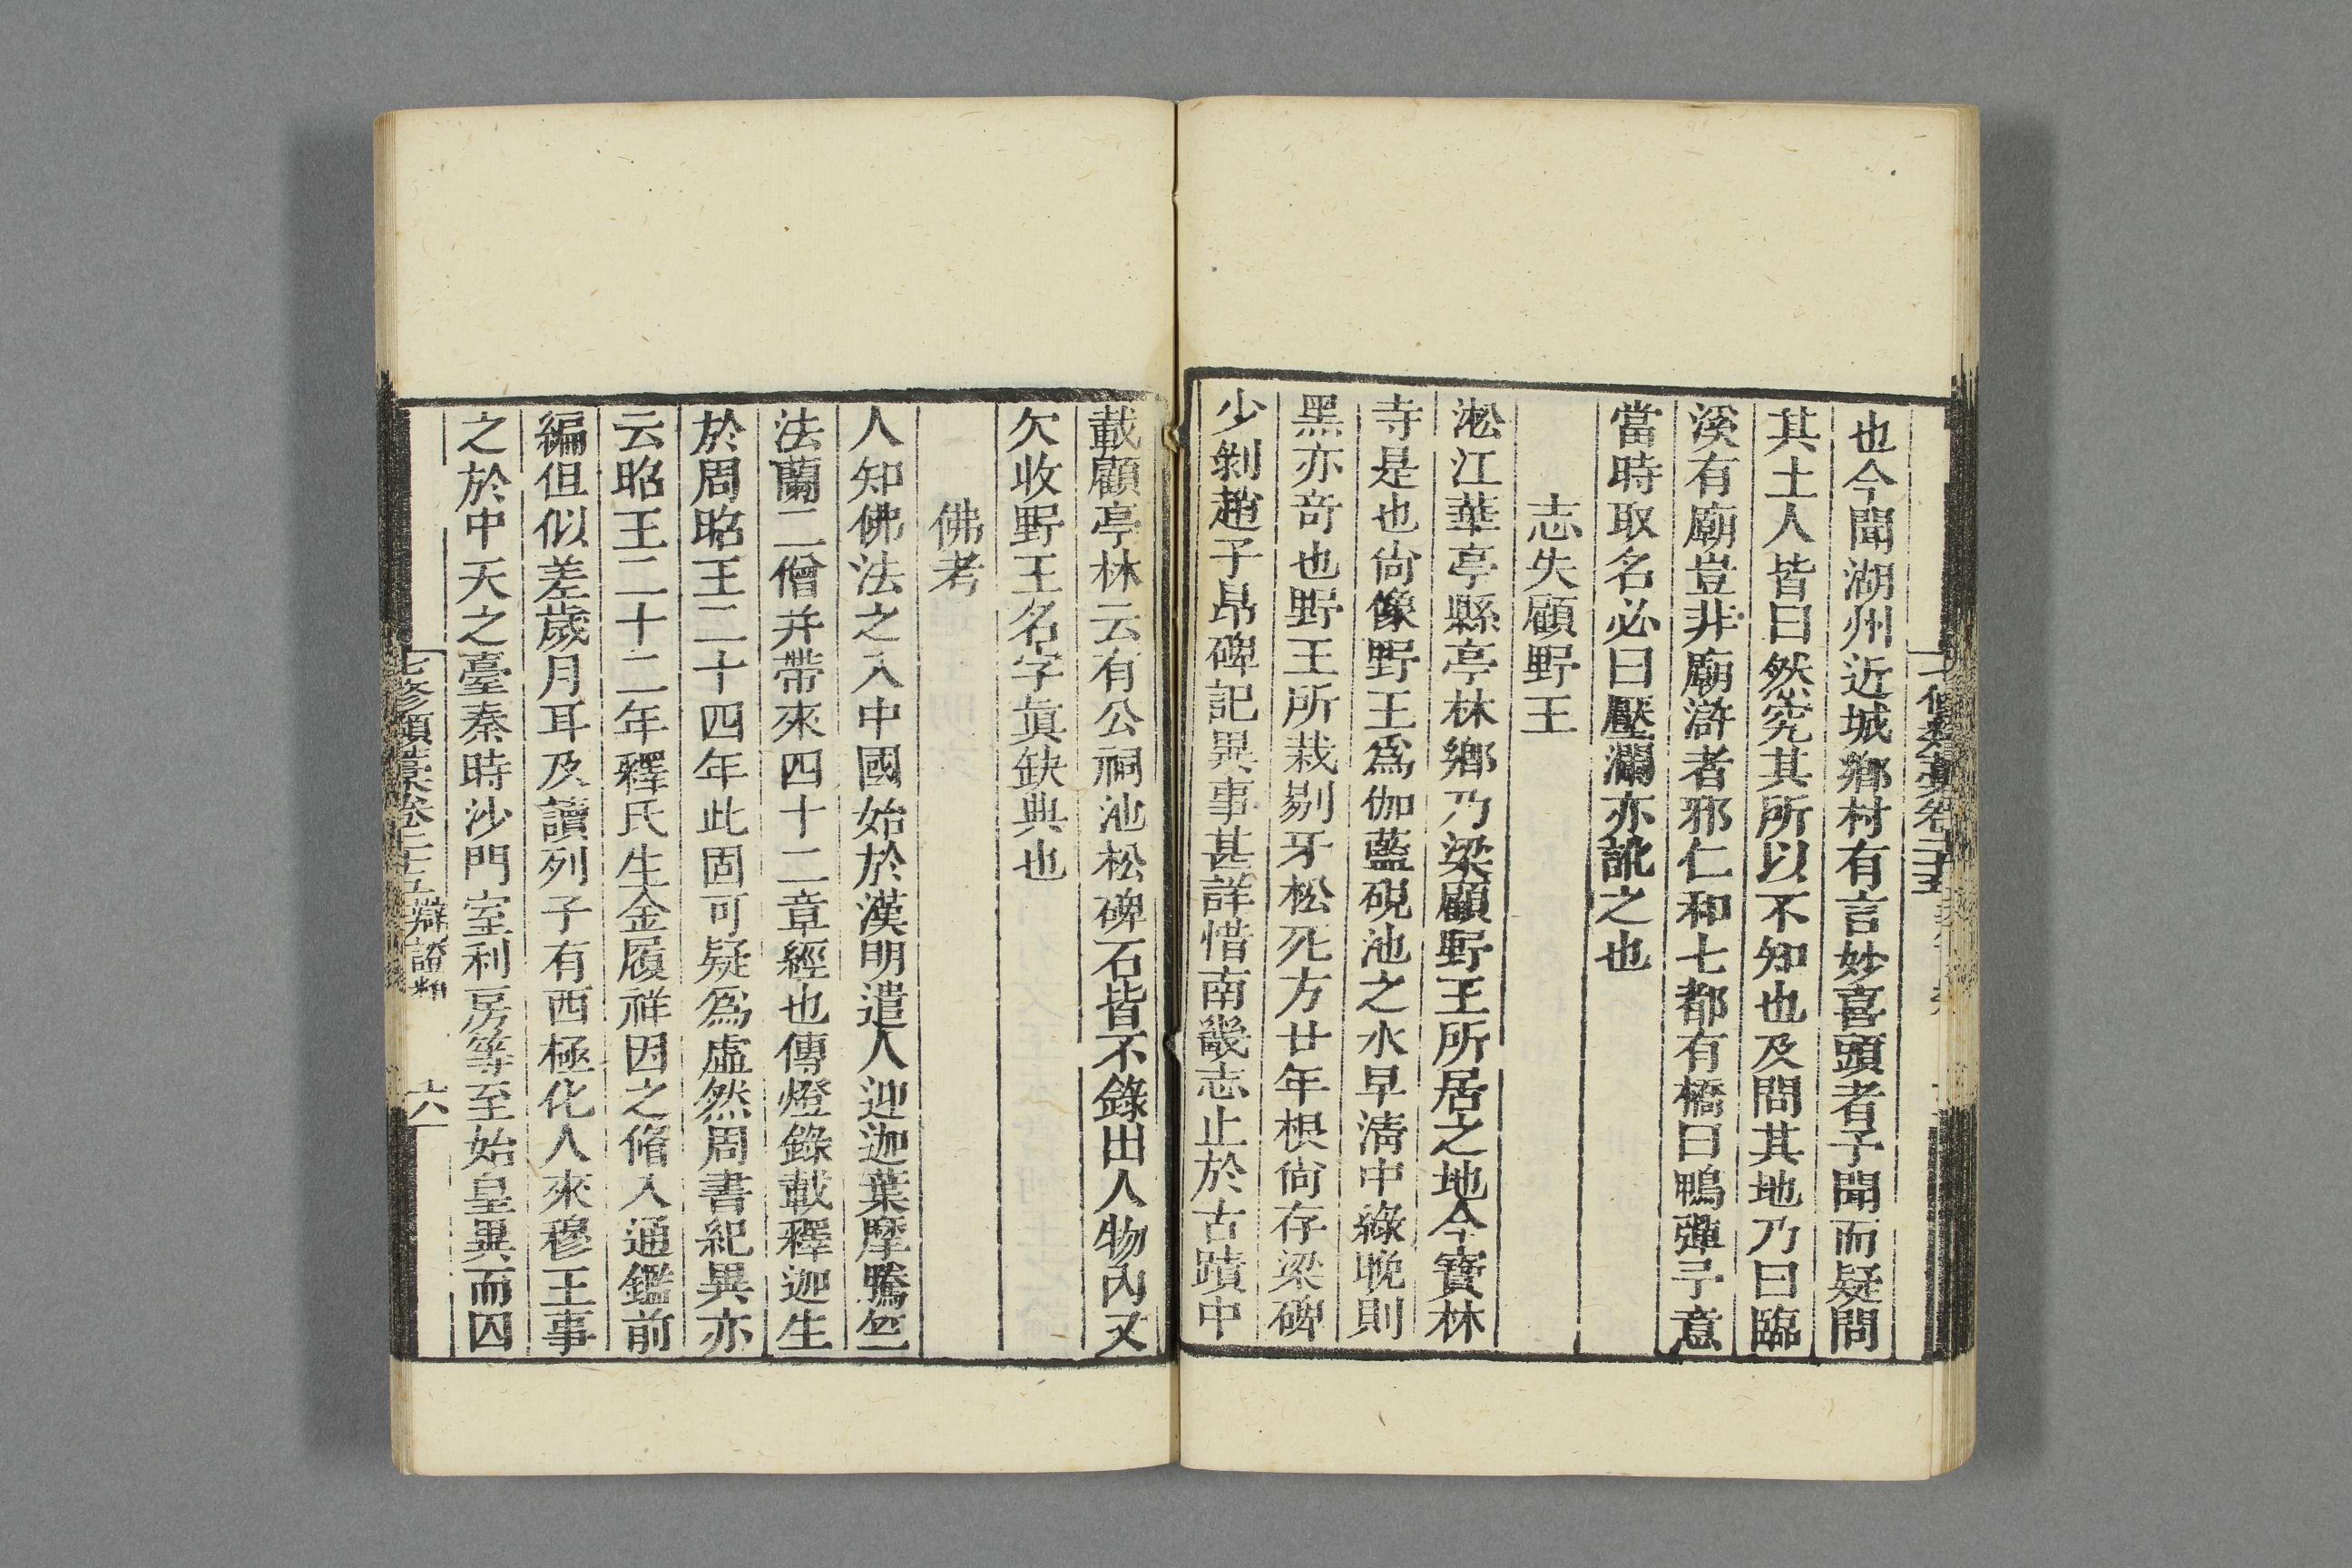 也今聞湖州近城鄉村有言妙喜頭者予聞而疑問
其土人皆曰然究其所以不知也及問其地乃曰臨
溪有廟豈非廟滸者邪仁和七都有橋曰鴨彈予意
當時取名必曰壓瀾亦訛之也
志失顧野王
淞江華亭縣亭林鄉乃梁顧野王所居之地今寶林
寺是也尙像野王爲伽藍硯池之水早淸中綠晚則
黑亦竒也野王所栽剔牙松死方廿年根尙存梁碑
少剝趙子昻碑記異事甚詳惜南畿志止於古蹟中
載顧亭林云有公祠池松碑石皆不錄出人物內又
欠收野王名字眞缺典也
佛考
人知佛法之入中國始於漢明遣人迎迦葉摩騰竺
法蘭二僧并帶來四十二章經也傳燈錄載釋迦生
於周昭王二十四年此固可疑爲虛然周書紀異亦
云昭王二十二年釋氏生金履祥因之脩入通鑑前
編但似差歲月耳及讀列子有西極化人來穆王事
之於中天之臺秦時沙門室利房等至始皇異而囚
七修類稾卷二十五 辯證類 六